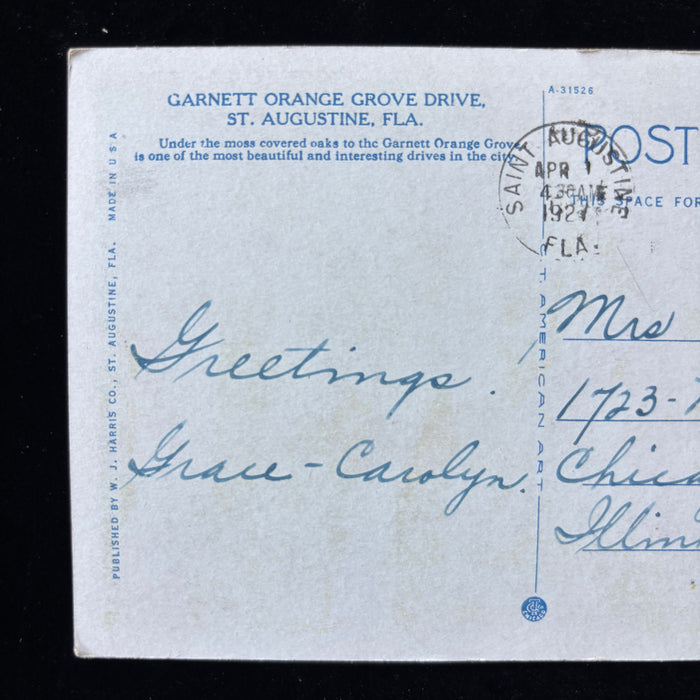 GARNETT ORANGE GROVE DRIVE,
ST. AUGUSTINE, FLA.
Under the moss covered oaks to the Garnett Orange Grove
is one of the most beautiful and interesting drives in the city.
A-31526
POST
THIS SPACE FOR
SAINT AUGUSTINE
APR 1
4 30 AM
1927
FLA.
Greetings.
Grace - Carolyn.
Mrs
1723-
Chica
Illin
C. T. AMERICAN ART
CHICAGO
PUBLISHED BY W. J. HARRIS CO., ST. AUGUSTINE, FLA. MADE IN U S A